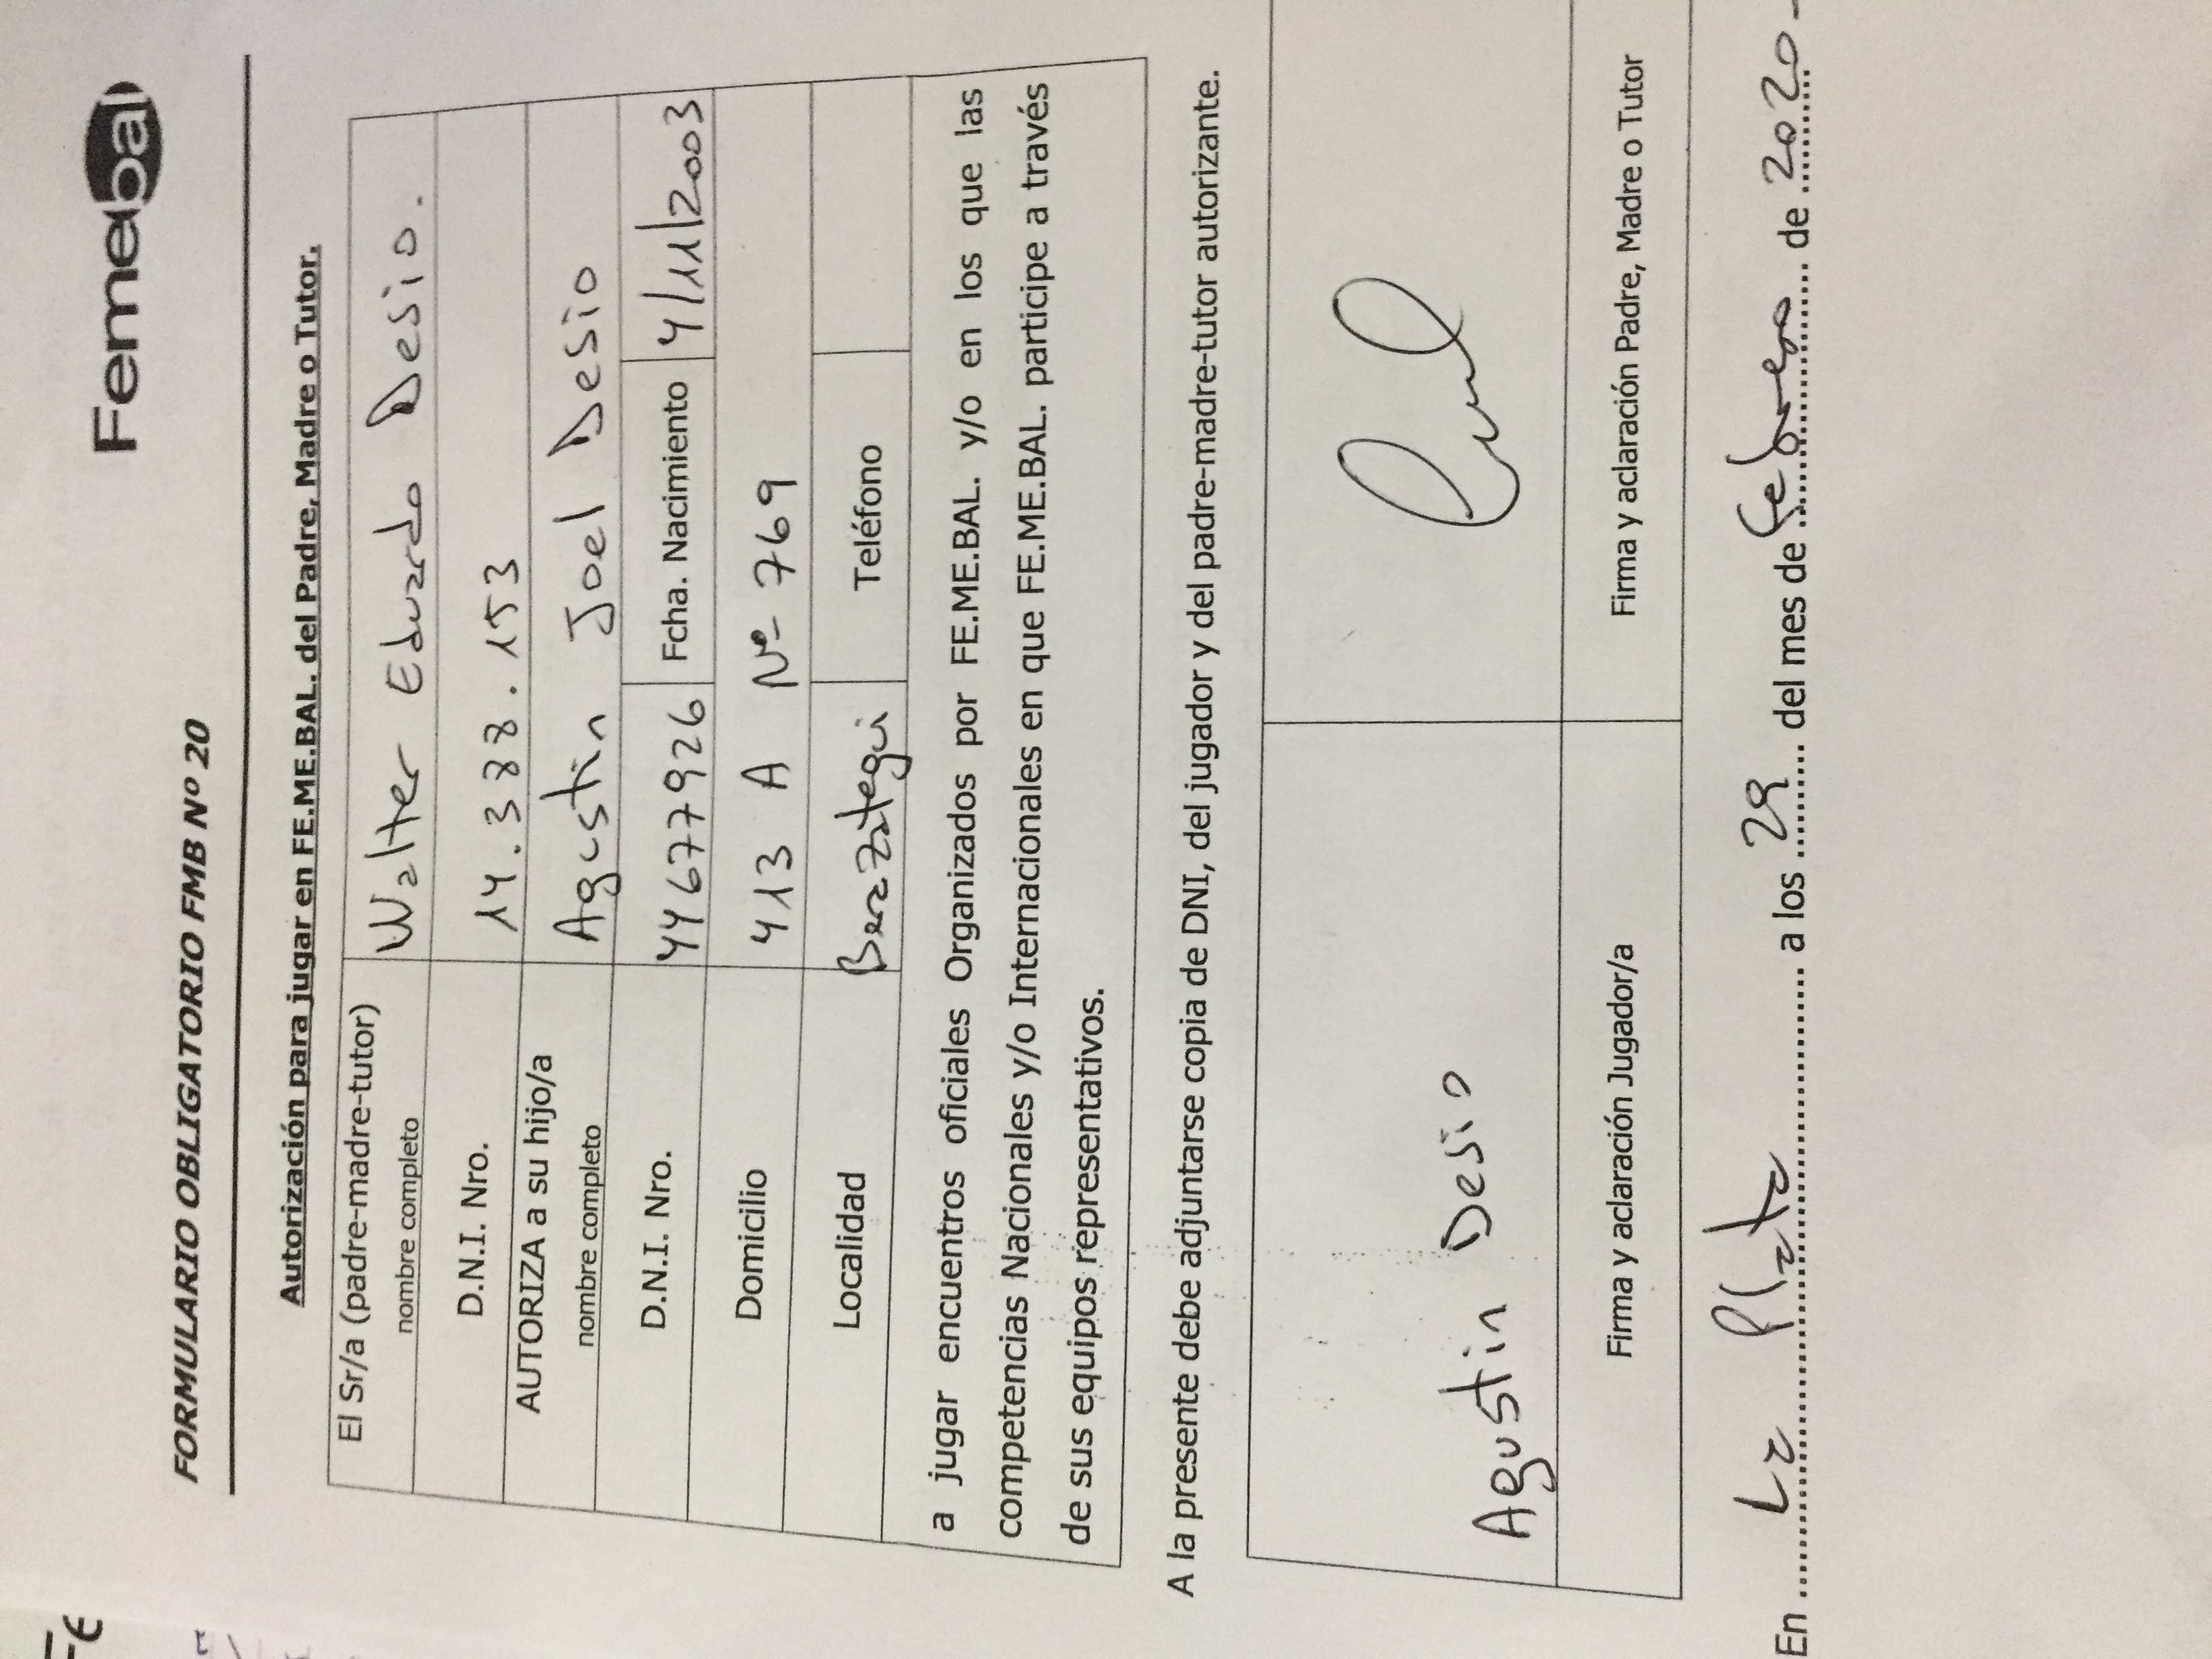 Femebal
FORMULARIO OBLIGATORIO FMB Nº 20
Autorización para jugar en FE.ME.BAL. del Padre, Madre o Tutor.
El Sr/a (padre-madre-tutor) nombre completo Walter Eduardo Desio.
D.N.I. Nro. 14.388.153
AUTORIZA a su hijo/a nombre completo Agustin Joel Desio
D.N.I. Nro. 44677926 Fcha. Nacimiento 4/11/2003
Domicilio 413 A Nº 769
Localidad Berazategui Teléfono
a jugar encuentros oficiales Organizados por FE.ME.BAL. y/o en los que las
competencias Nacionales y/o Internacionales en que FE.ME.BAL. participe a través
de sus equipos representativos.
A la presente debe adjuntarse copia de DNI, del jugador y del padre-madre-tutor autorizante.
Agustin Desio
Firma y aclaración Jugador/a Firma y aclaración Padre, Madre o Tutor
En La Plata a los 29 del mes de febrero de 2020-